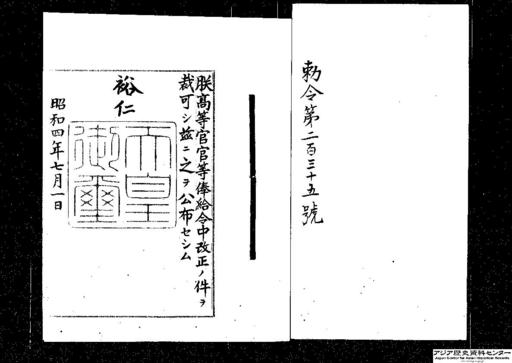 勅令第二百三十五號
朕高等官官等俸給令中改正ノ件ヲ
裁可シ茲ニ之ヲ公布セシム
裕仁
天皇
御璽
昭和四年七月一日
アジア歴史資料センター
Japan Center for Asian Historical Records